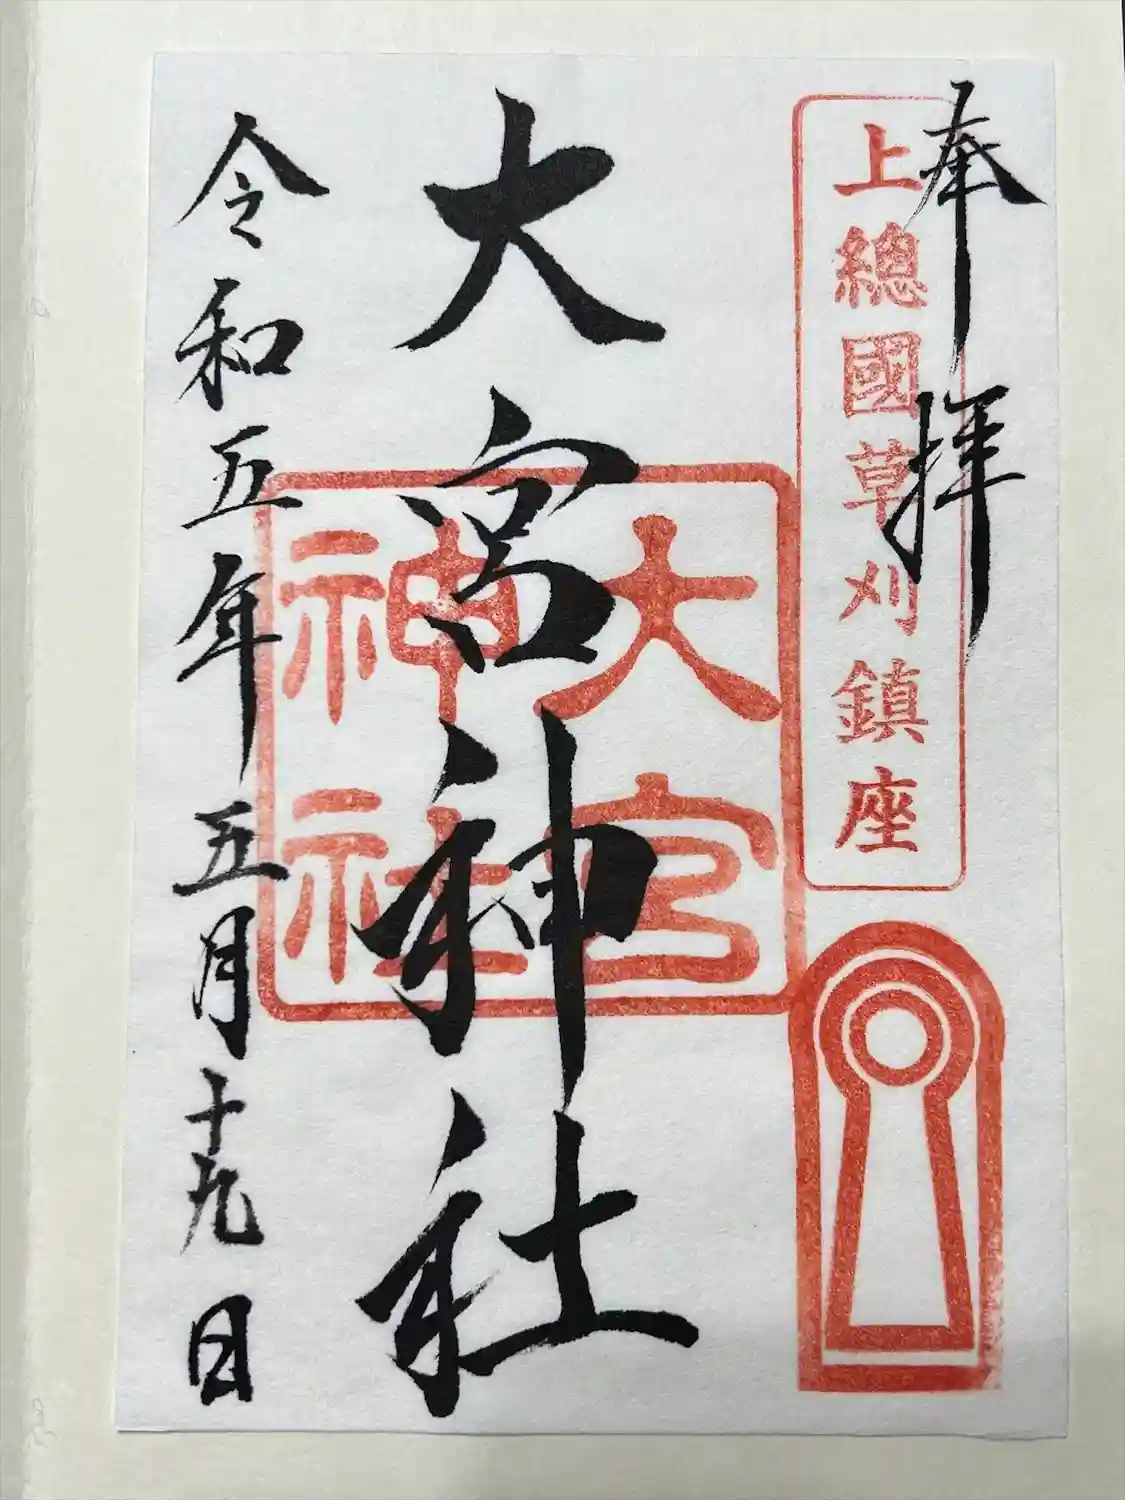 奉拝
上總國草刈鎮座
大宮神社
大宮
神社
令和五年五月十九日